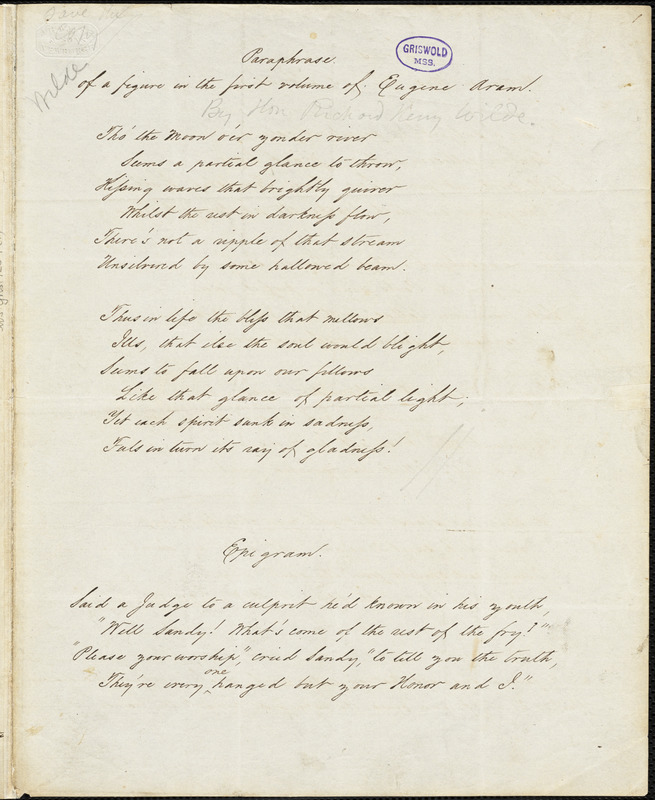 Save this
Copy
Wilde
1
GRISWOLD
MSS.
Paraphrase.
of a figure in the first volume of Eugene Aram.
By Hon Richard Henry Wilde.
Tho' the Moon o'er yonder river
Seems a partial glance to throw,
Kissing waves that brightly quiver
Whilst the rest in darkness flow,
There's not a ripple of that stream
Unsilvered by some hallowed beam.
Thus in life the bliss that mellows
Ills, that else the soul would blight,
Seems to fall upon our fellows
Like that glance of partial light;
Yet each spirit sunk in sadness,
Feels in turn its ray of gladness!
Epigram.
Said a Judge to a culprit he'd known in his youth,
"Well Sandy! What's come of the rest of the fry?"
"Please your worship", cried Sandy, "to tell you the truth,
They're every one hanged but your Honor and I."